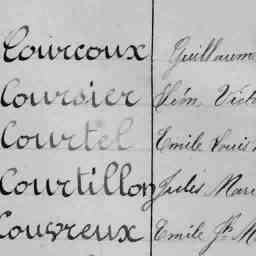 Courcoux Guillaume
Coursier Léon Vict
Courtel Emile Louis
Courtillon Jules Mari
Couvreux Emile Jh M